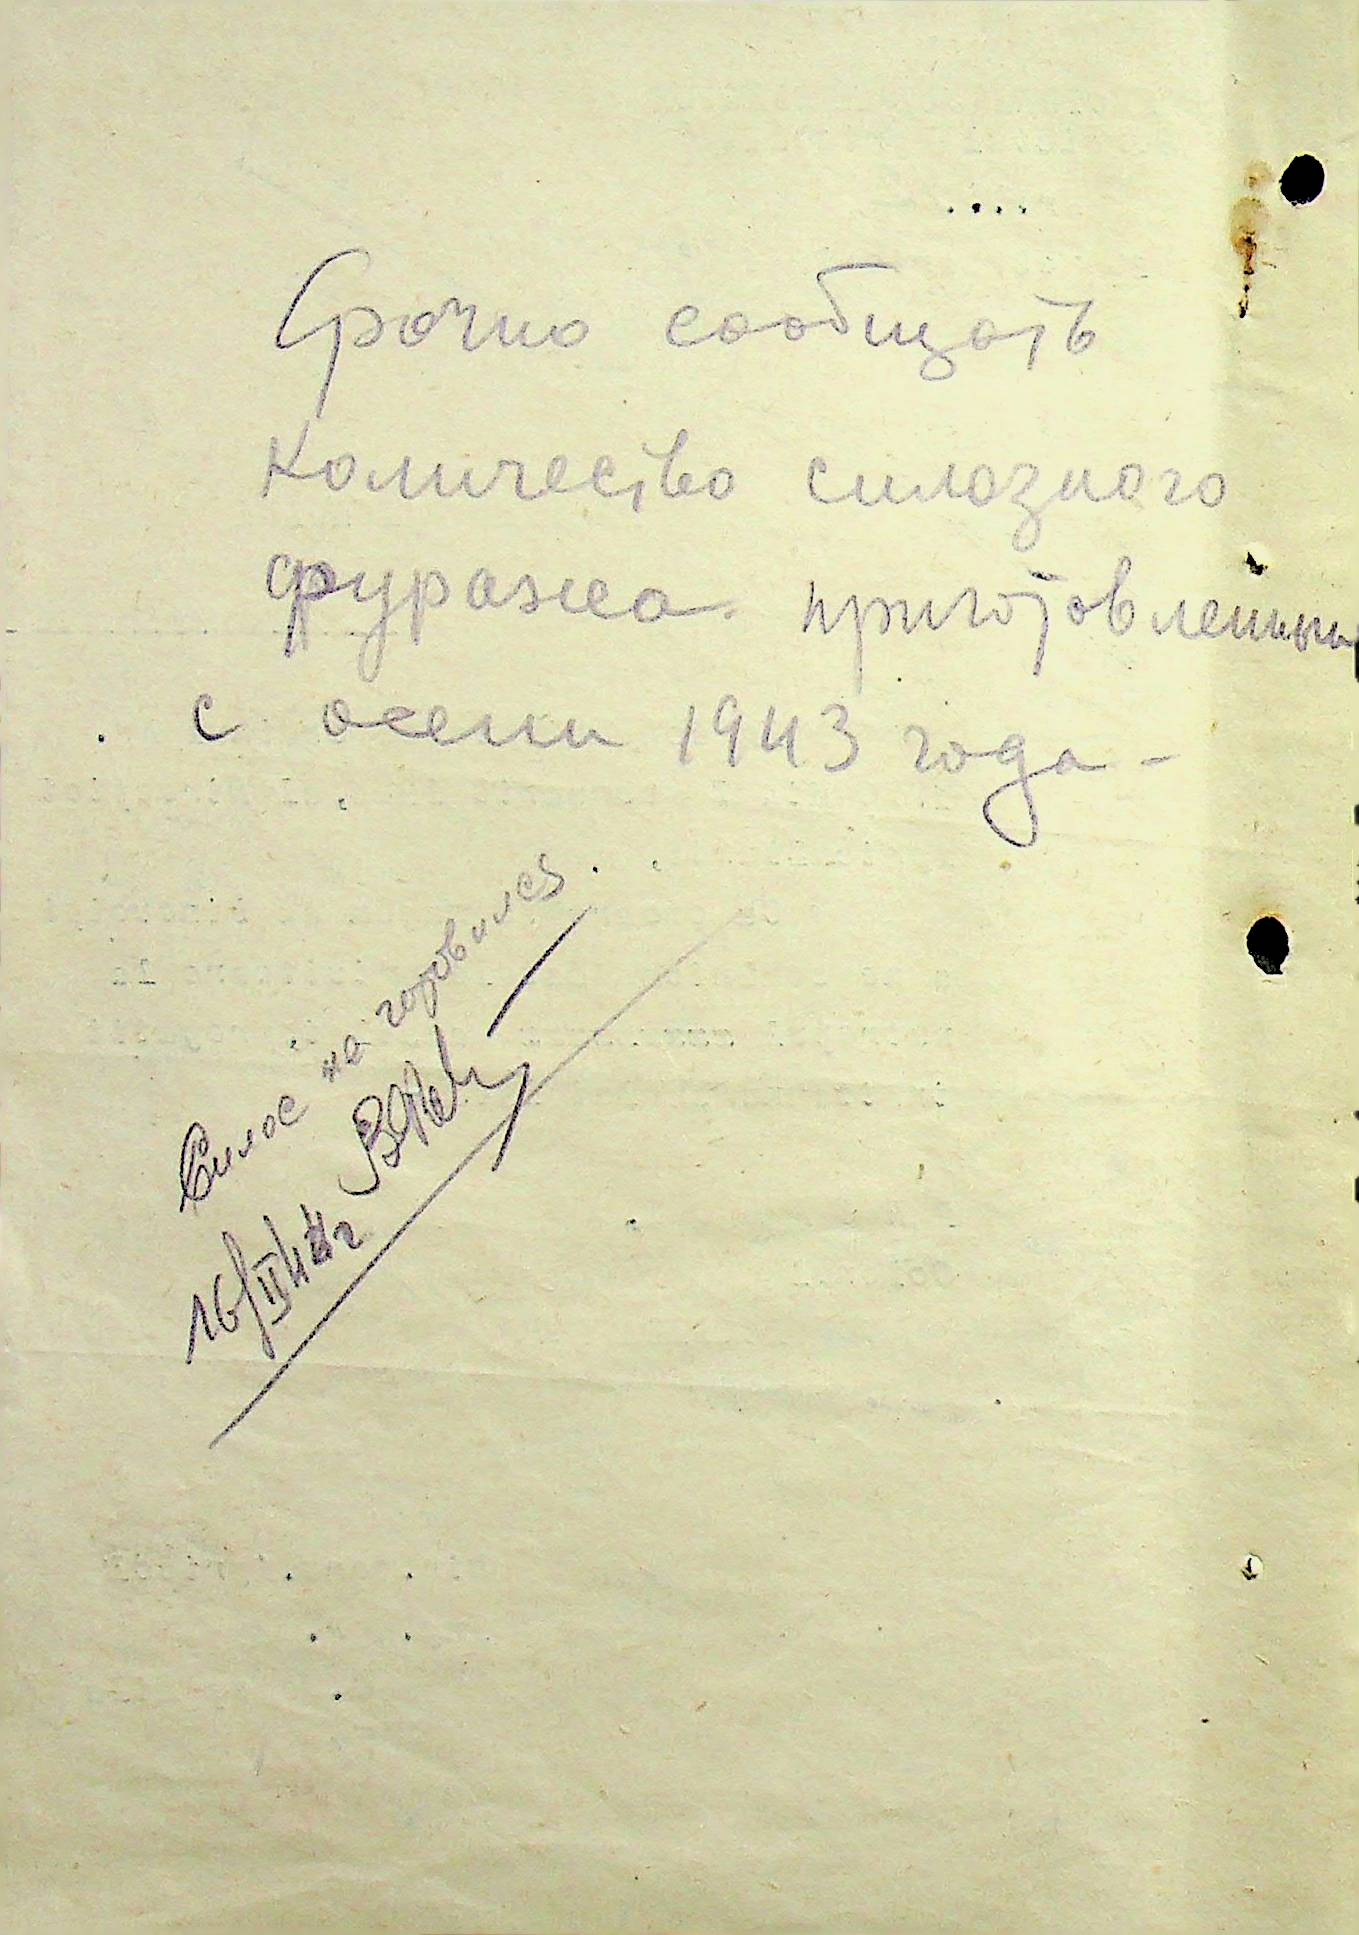 Срочно сообщать
количество силозного
фуража приготовленным
с осени 1943 года -
Силос на готовился.
16/II 44г